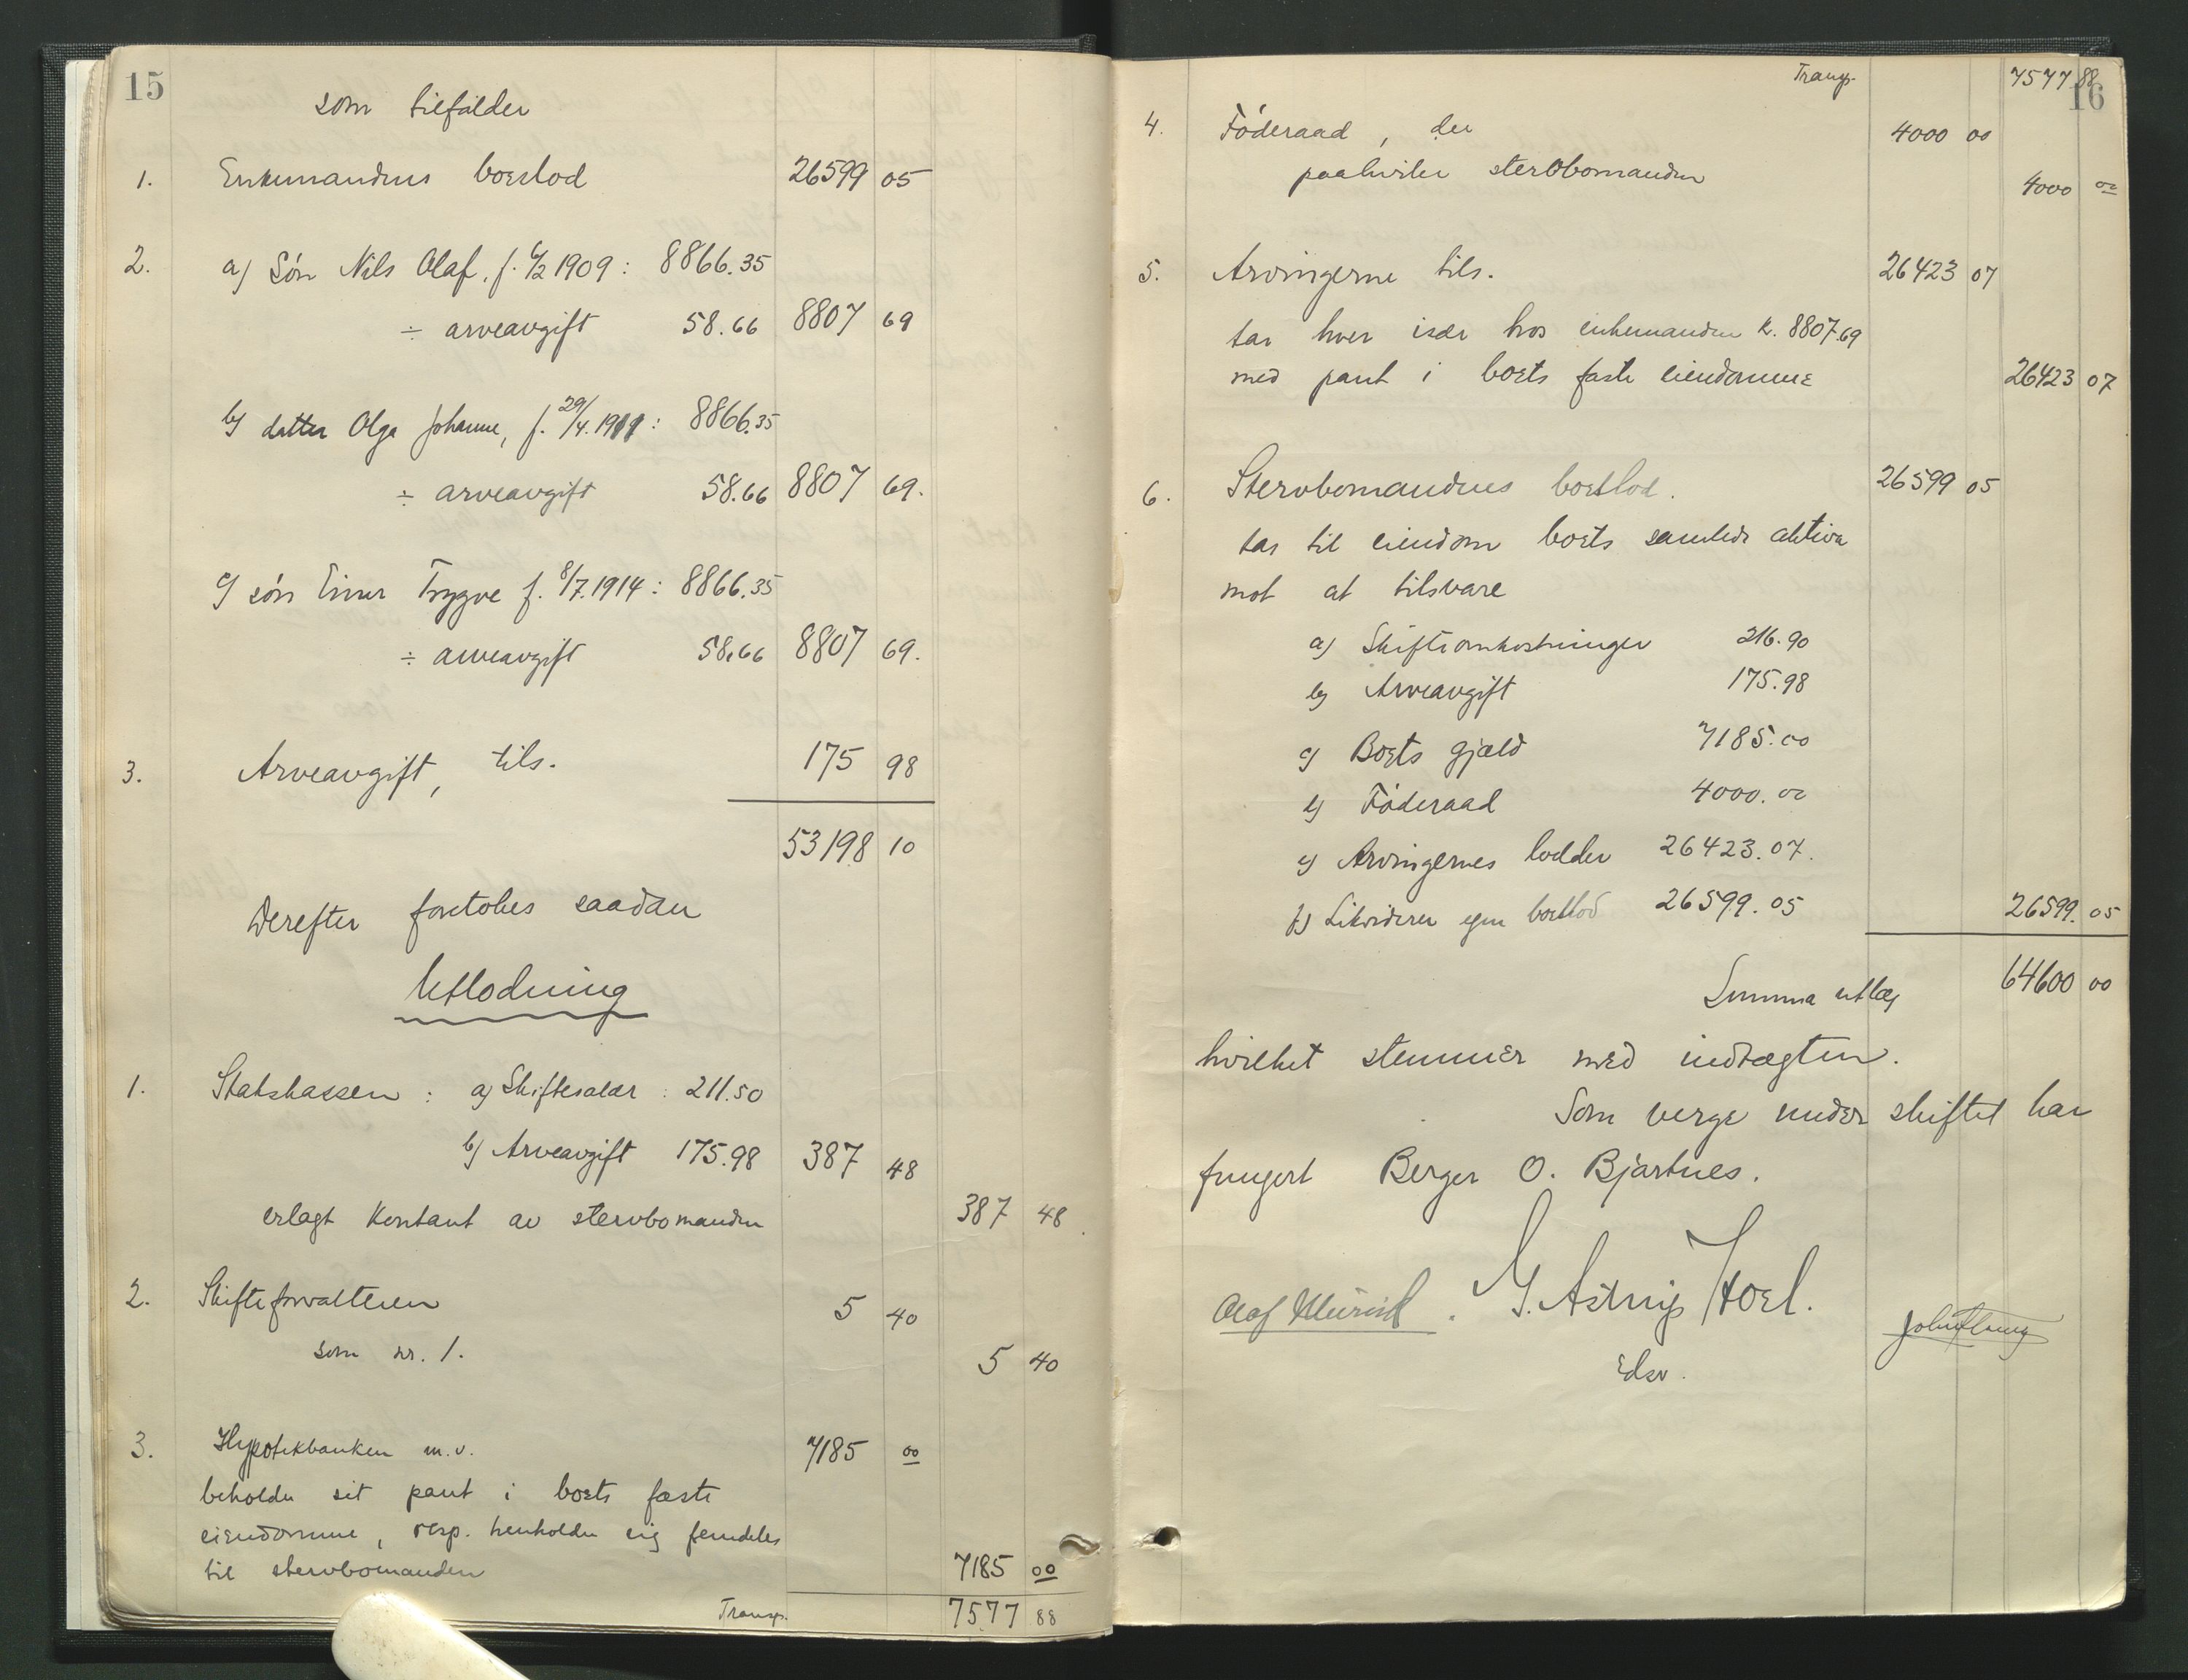 15
som tilfalder
1. Enkemandens boeslod 26599 05
2. a) Søn Nils Olaf, f. 6/2 1909: 8866.35
÷ arveavgift 58.66 8807 69
b) datter Olga Johanne, f. 29/4.1911: 8866.35
÷ arveavgift 58.66 8807 69.
c) søn Einar Trygve f. 8/7.1914: 8866.35
÷ arveavgift 58.66 8807 69.
3. Arveavgift, tils. 175 98
53198 10
Derefter foretokes saadan
Utlodning
1. Statskassen: a) Skiftesalær: 211.50
b) Arveavgift 175.98 387 48
erlagt kontant av stervbomanden 387 48.
2. Skifteforvalteren 5 40
som nr. 1. 5 40
3. Hypotekbanken m.v. 7185 00
beholder sit pant i boets faste
eiendomme, resp. henholder sig fremdeles
til stervbomanden 7185 00
Transp. 7577 88
16
Transp. 7577 88
4. Føderaad, der 4000 00
paahviler stervbomanden 4000 00
5. Arvingerne tils. 26423 07
tar hver især hos enkemanden k. 8807.69
med pant i boets faste eiendomme 26423 07
6. Stervbomandens boeslod. 26599 05
tar til eiendom boets samlede aktiva
mot at tilsvare
a) Skifteomkostninger 216.90
b) Arveavgift 175.98
c) Boets gjæld 7185.00
d) Føderaad 4000.00
e) Arvingernes lodder 26423.07.
f) Likviderer egen boeslod 26599.05 26599.05
Summa utlæg 64600 00
hvilket stemmer med indtægten.
Som verge under skiftet har
fungert Berger O. Bjartnes.
Olaf . G. Astrup Hoel.
Edsv.